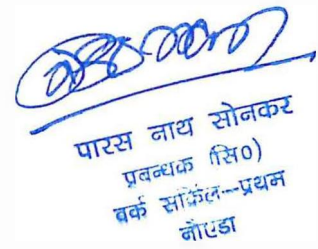 पारस नाथ सोनकर
प्रबन्धक (सि०)
वर्क सर्किल---प्रथम
नौएडा